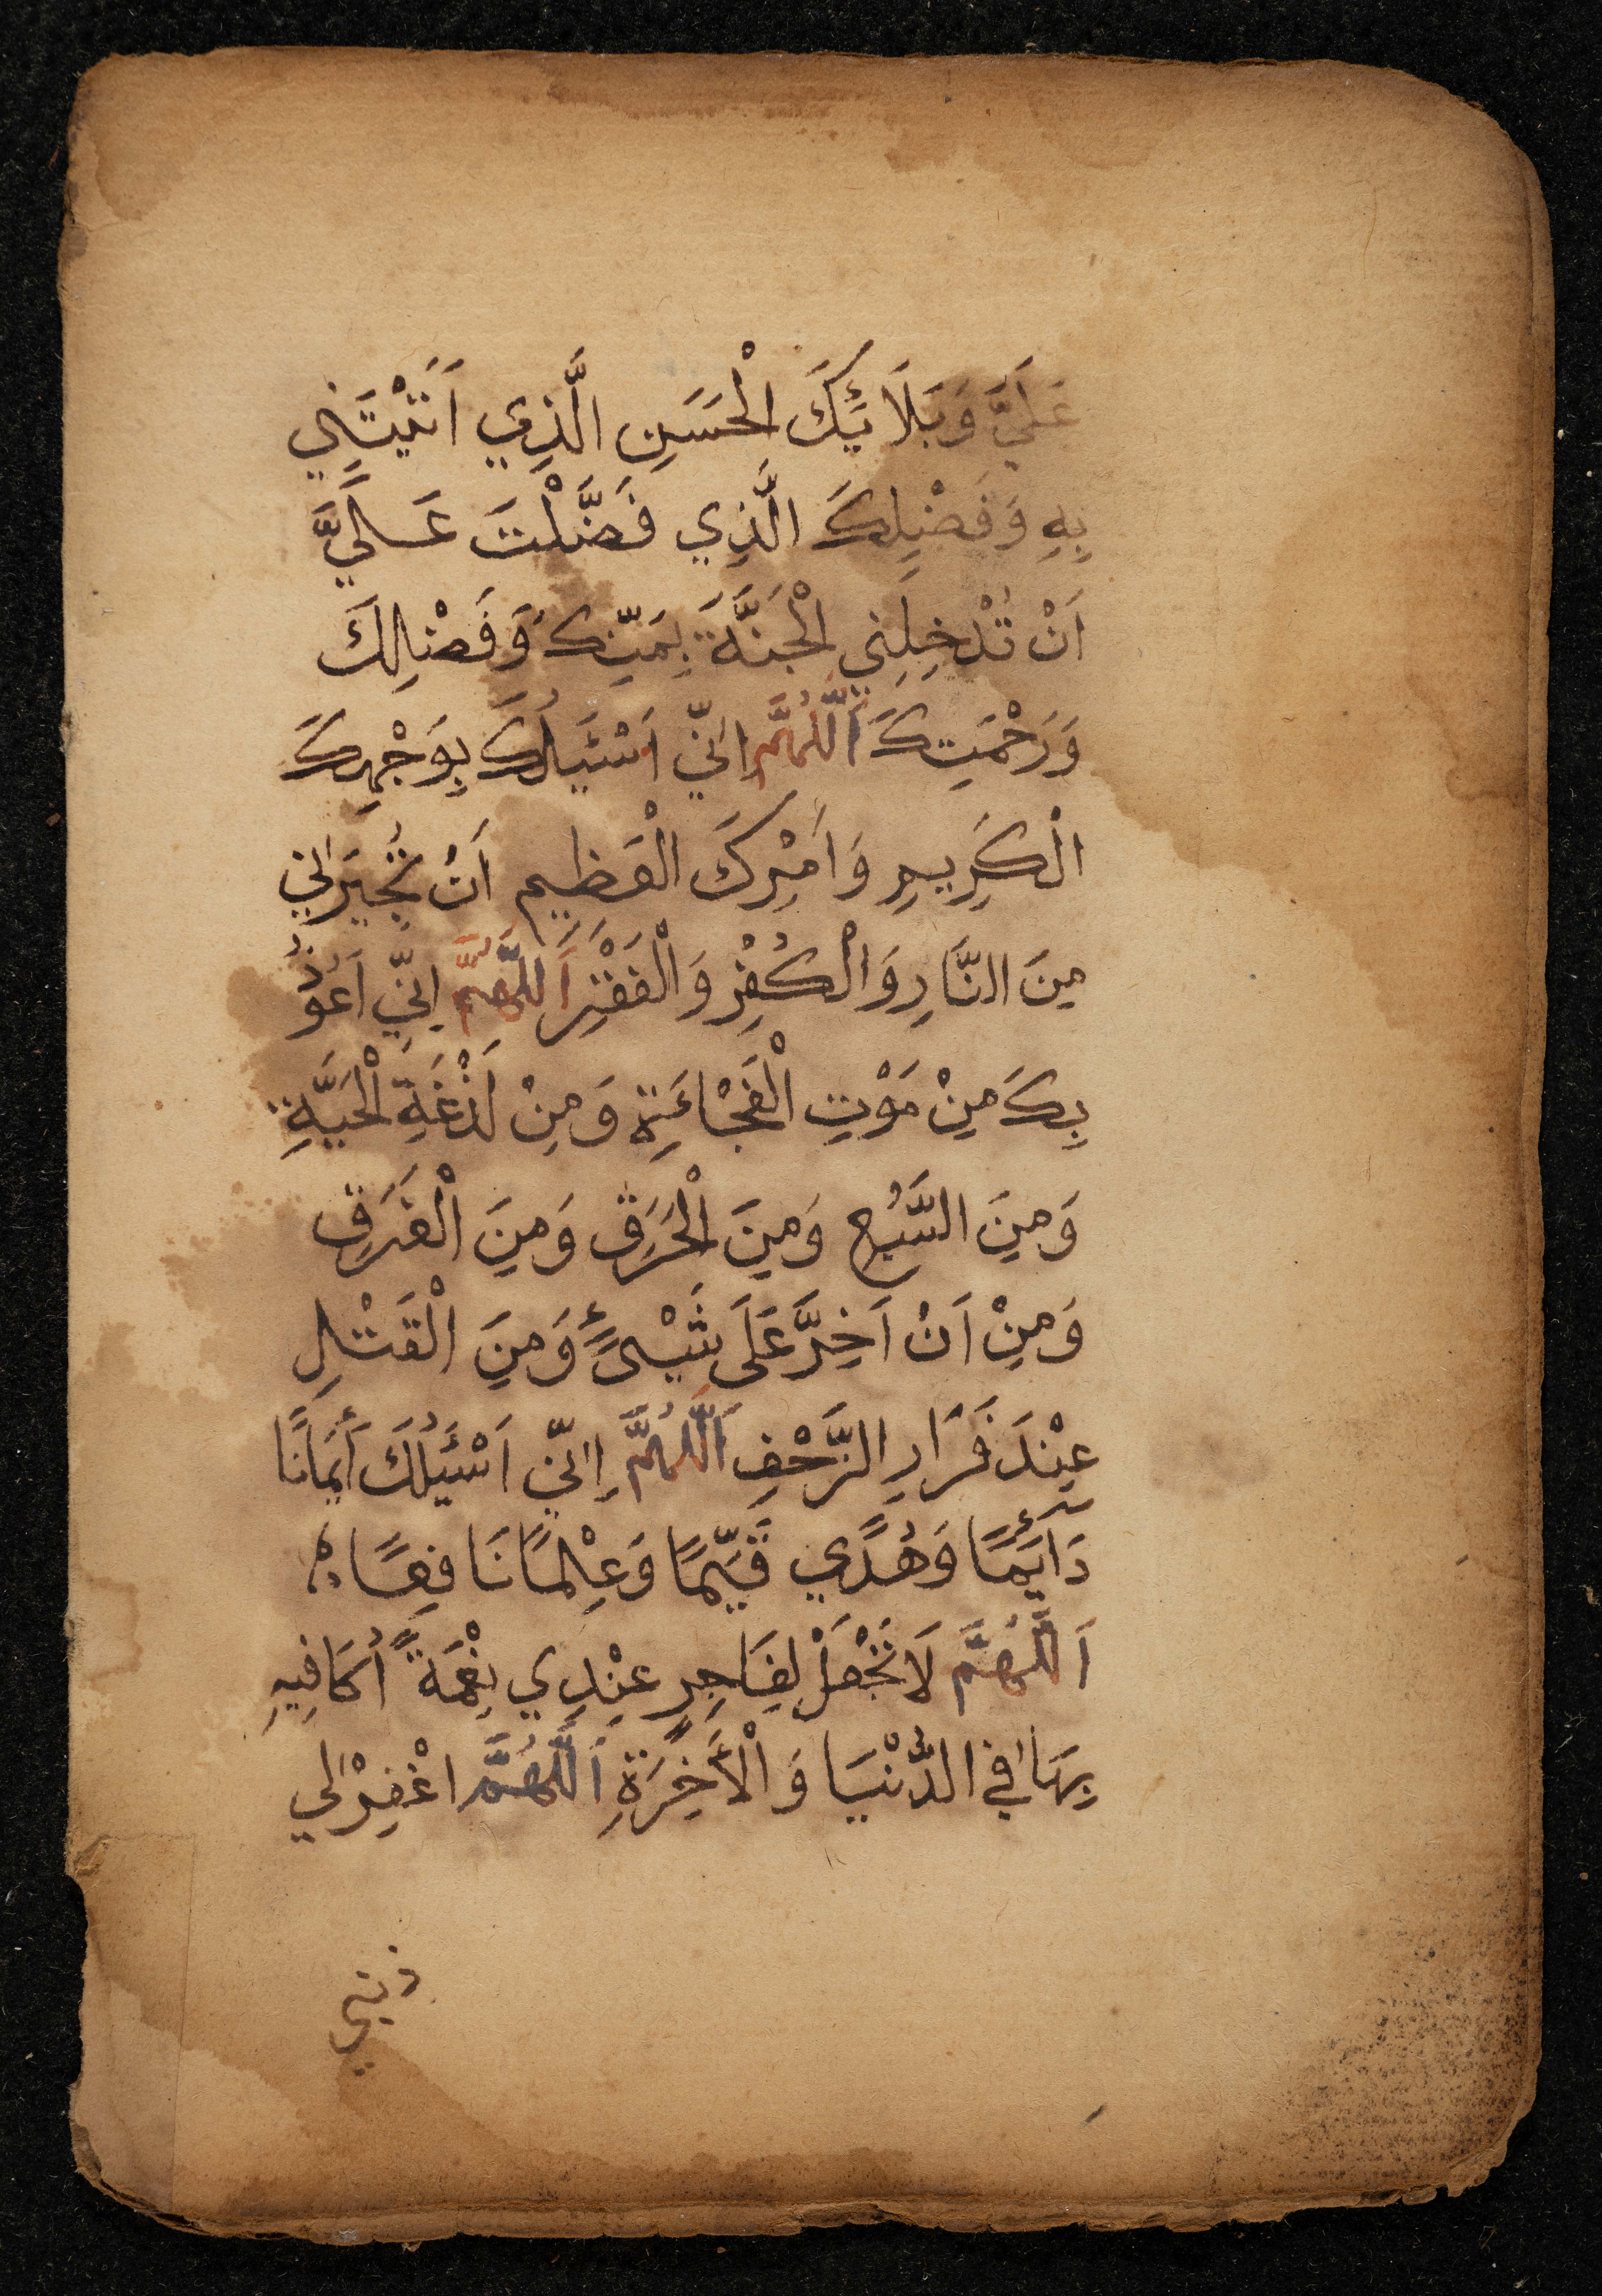 عَلَيَّ وَبَلَائِكَ الْحَسَنِ الَّذِي اَبْتَلَيْتَنِي
بِهِ وَفَضْلِكَ الَّذِي فَضَّلْتَ عَلَيَّ
اَنْ تُدْخِلَنِي الْجَنَّةَ بِمَنِّكَ وَفَضْلِكَ
وَرَحْمَتِكَ اَللّٰهُمَّ اِنِّي اَسْئَلُكَ بِوَجْهِكَ
الْكَرِيمِ وَاَمْرِكَ الْعَظِيمِ اَنْ تُجِيرَنِي
مِنَ النَّارِ وَالْكُفْرِ وَالْفَقْرِ اَللّٰهُمَّ اِنِّي اَعُوذُ
بِكَ مِنْ مَوْتِ الْفَجْاءَةِ وَمِنْ لَدْغَةِ الْحَيَّةِ
وَمِنَ السَّبُعِ وَمِنَ الْحَرَقِ وَمِنَ الْغَرَقِ
وَمِنْ اَنْ اَخِرَّ عَلَى شَيْئٍ وَمِنَ الْقَتْلِ
عِنْدَ فَرَارِ الزَّحْفِ اَللّٰهُمَّ اِنِّي اَسْئَلُكَ اِيمَانًا
دَائِمًا وَهُدًي قَيِّمًا وَعِلْمًا نَافِعًا
اَللّٰهُمَّ لَا تَجْعَلْ لِفَاجِرٍ عِنْدِي نِعْمَةً اُكَافِيهِ
بِهَا فِي الدُّنْيَا وَالْأَخِرَةِ اَللّٰهُمَّ اغْفِرْ لِي
ذنبي